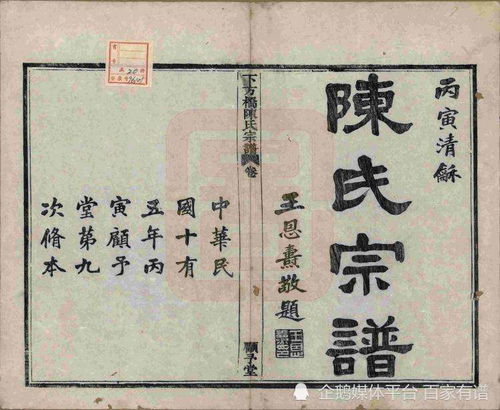 丙寅清龢
陳氏宗譜
王恩燾敬題
下方橋陳氏宗譜
卷
顧予堂
中華民
國十有
五年丙
寅顧予
堂第九
次脩本
企鹅媒体平台 百家有谱